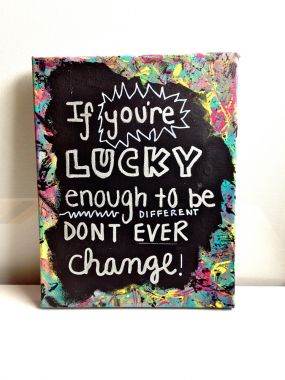 If you're
LUCKY
enough to be
DIFFERENT
DONT EVER
change!